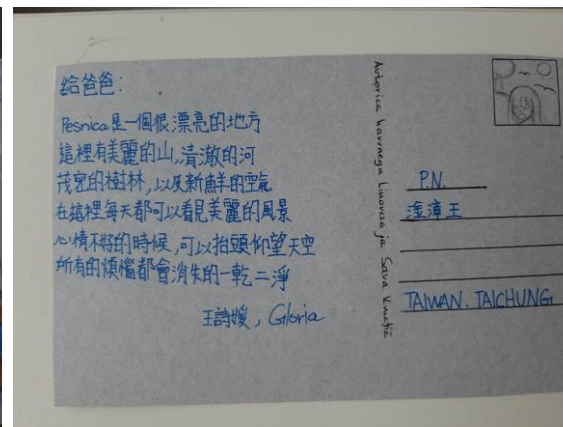 給爸爸:
Pesnica是一個很漂亮的地方
這裡有美麗的山,清澈的河
茂密的樹林,以及新鮮的空氣
在這裡每天都可以看見美麗的風景
心情不好的時候,可以抬頭仰望天空
所有的煩惱都會消失的一乾二淨
王詩媛, Gloria
Avtorica barvnega linoreza je Sava Kmetič
P.N.
漳王
TAIWAN. TAICHUNG